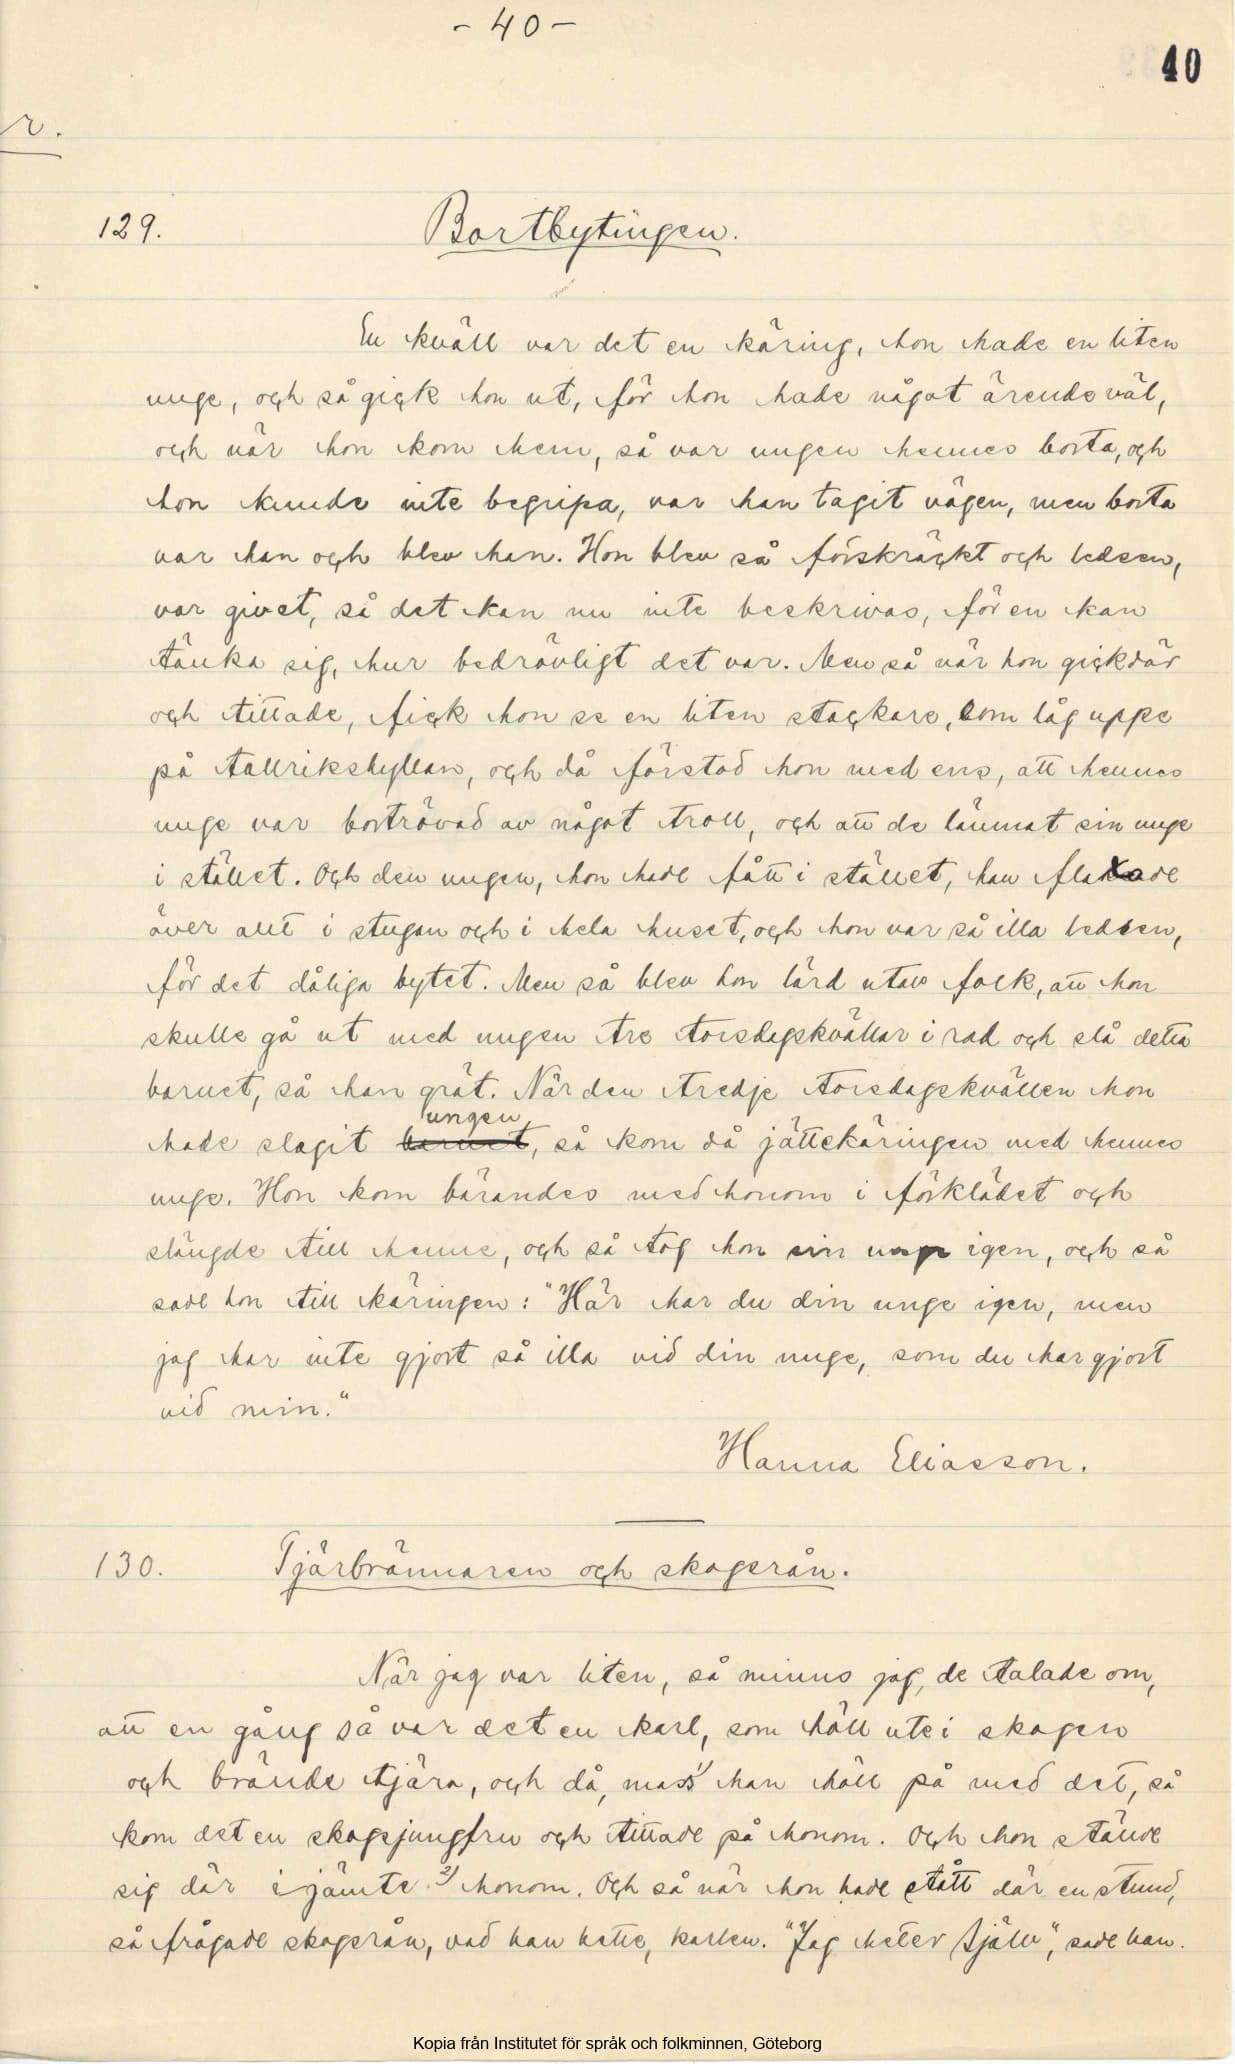 - 40 -
40
r.
129. Bortbytingen.
En kväll var det en käring, hon hade en liten
unge, och så gick hon ut, för hon hade något ärende väl,
och när hon kom hem, så var ungen hennes borta, och
hon kunde inte begripa, var han tagit vägen, men borta
var han och blev han. Hon blev så förskräckt och ledsen,
var givet, så det kan nu inte beskrivas, för en kan
tänka sig, hur bedrövligt det var. Men så när hon gick där
och tittade, fick hon se en liten stackare, som låg uppe
på tallrikshyllan, och då förstod hon med ens, att hennes
unge var bortrövad av något troll, och att de lämnat sin unge
i stället. Och den ungen, hon hade fått i stället, han flaxade
över allt i stugan och i hela huset, och hon var så illa ledsen,
för det dåliga bytet. Men så blev hon lärd utav folk, att hon
skulle gå ut med ungen tre torsdagskvällar i rad och slå detta
barnet, så han grät. När den tredje torsdagskvällen hon
ungen
hade slagit barnet, så kom då jättekäringen med hennes
unge. Hon kom bärandes med honom i förklädet och
slängde till henne, och så tog hon sin unge igen, och så
sade hon till käringen: "Här har du din unge igen, men
jag har inte gjort så illa vid din unge, som du har gjort
vid min."
Hanna Eliasson.
130. Tjärbrännaren och skogsrån.
När jag var liten, så minns jag, de talade om,
att en gång så var det en karl, som höll ute i skogen
och brände tjära, och då, mass 1) han höll på med det, så
kom det en skogsjungfru och tittade på honom. Och hon stände
sig där i jämte 2) honom. Och så när hon hade stått där en stund,
så frågade skogsrån, vad han hette, karlen. "Jag heter Själv", sade han.
Kopia från Institutet för språk och folkminnen, Göteborg